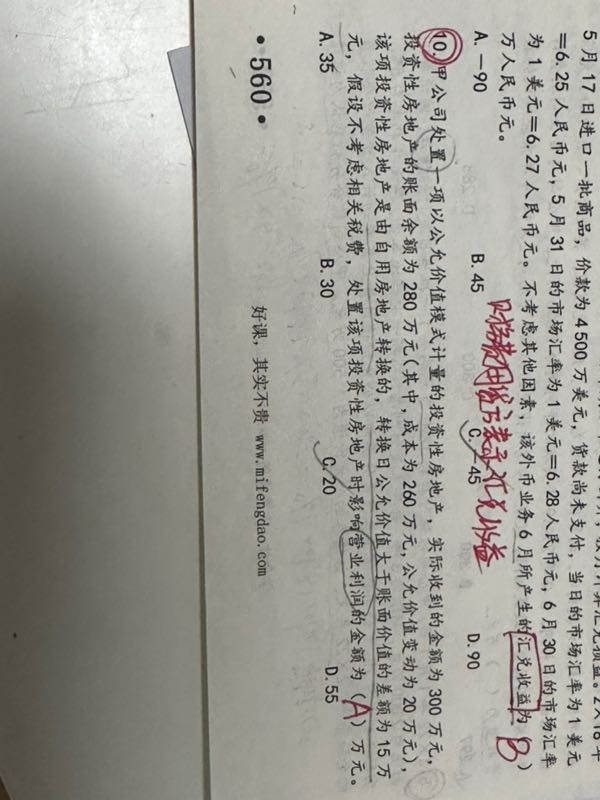 5月17日进口一批商品，价款为4500万美元，货款尚未支付，当日的市场汇率为1美元
=6.25人民币元，5月31日的市场汇率为1美元=6.28人民币元，6月30日的市场汇率
为1美元=6.27人民币元。不考虑其他因素，该外币业务6月所产生的汇兑收益为（B）
万人民币元。
A.-90 B.45 C.-45 D.90
财务费用贷方表示汇兑收益
10.甲公司处置一项以公允价值模式计量的投资性房地产，实际收到的金额为300万元，
投资性房地产的账面余额为280万元（其中，成本为260万元，公允价值变动为20万元），
该项投资性房地产是由自用房地产转换的，转换日公允价值大于账面价值的差额为15万
元，假设不考虑相关税费，处置该项投资性房地产时影响营业利润的金额为（A）万元。
A.35 B.30 C.20 D.55
好课，其实不贵 www.mifengdao.com
•560•